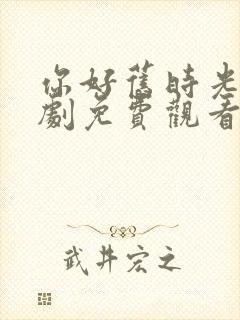 你好舊時光
劇免費觀看
武井宏之